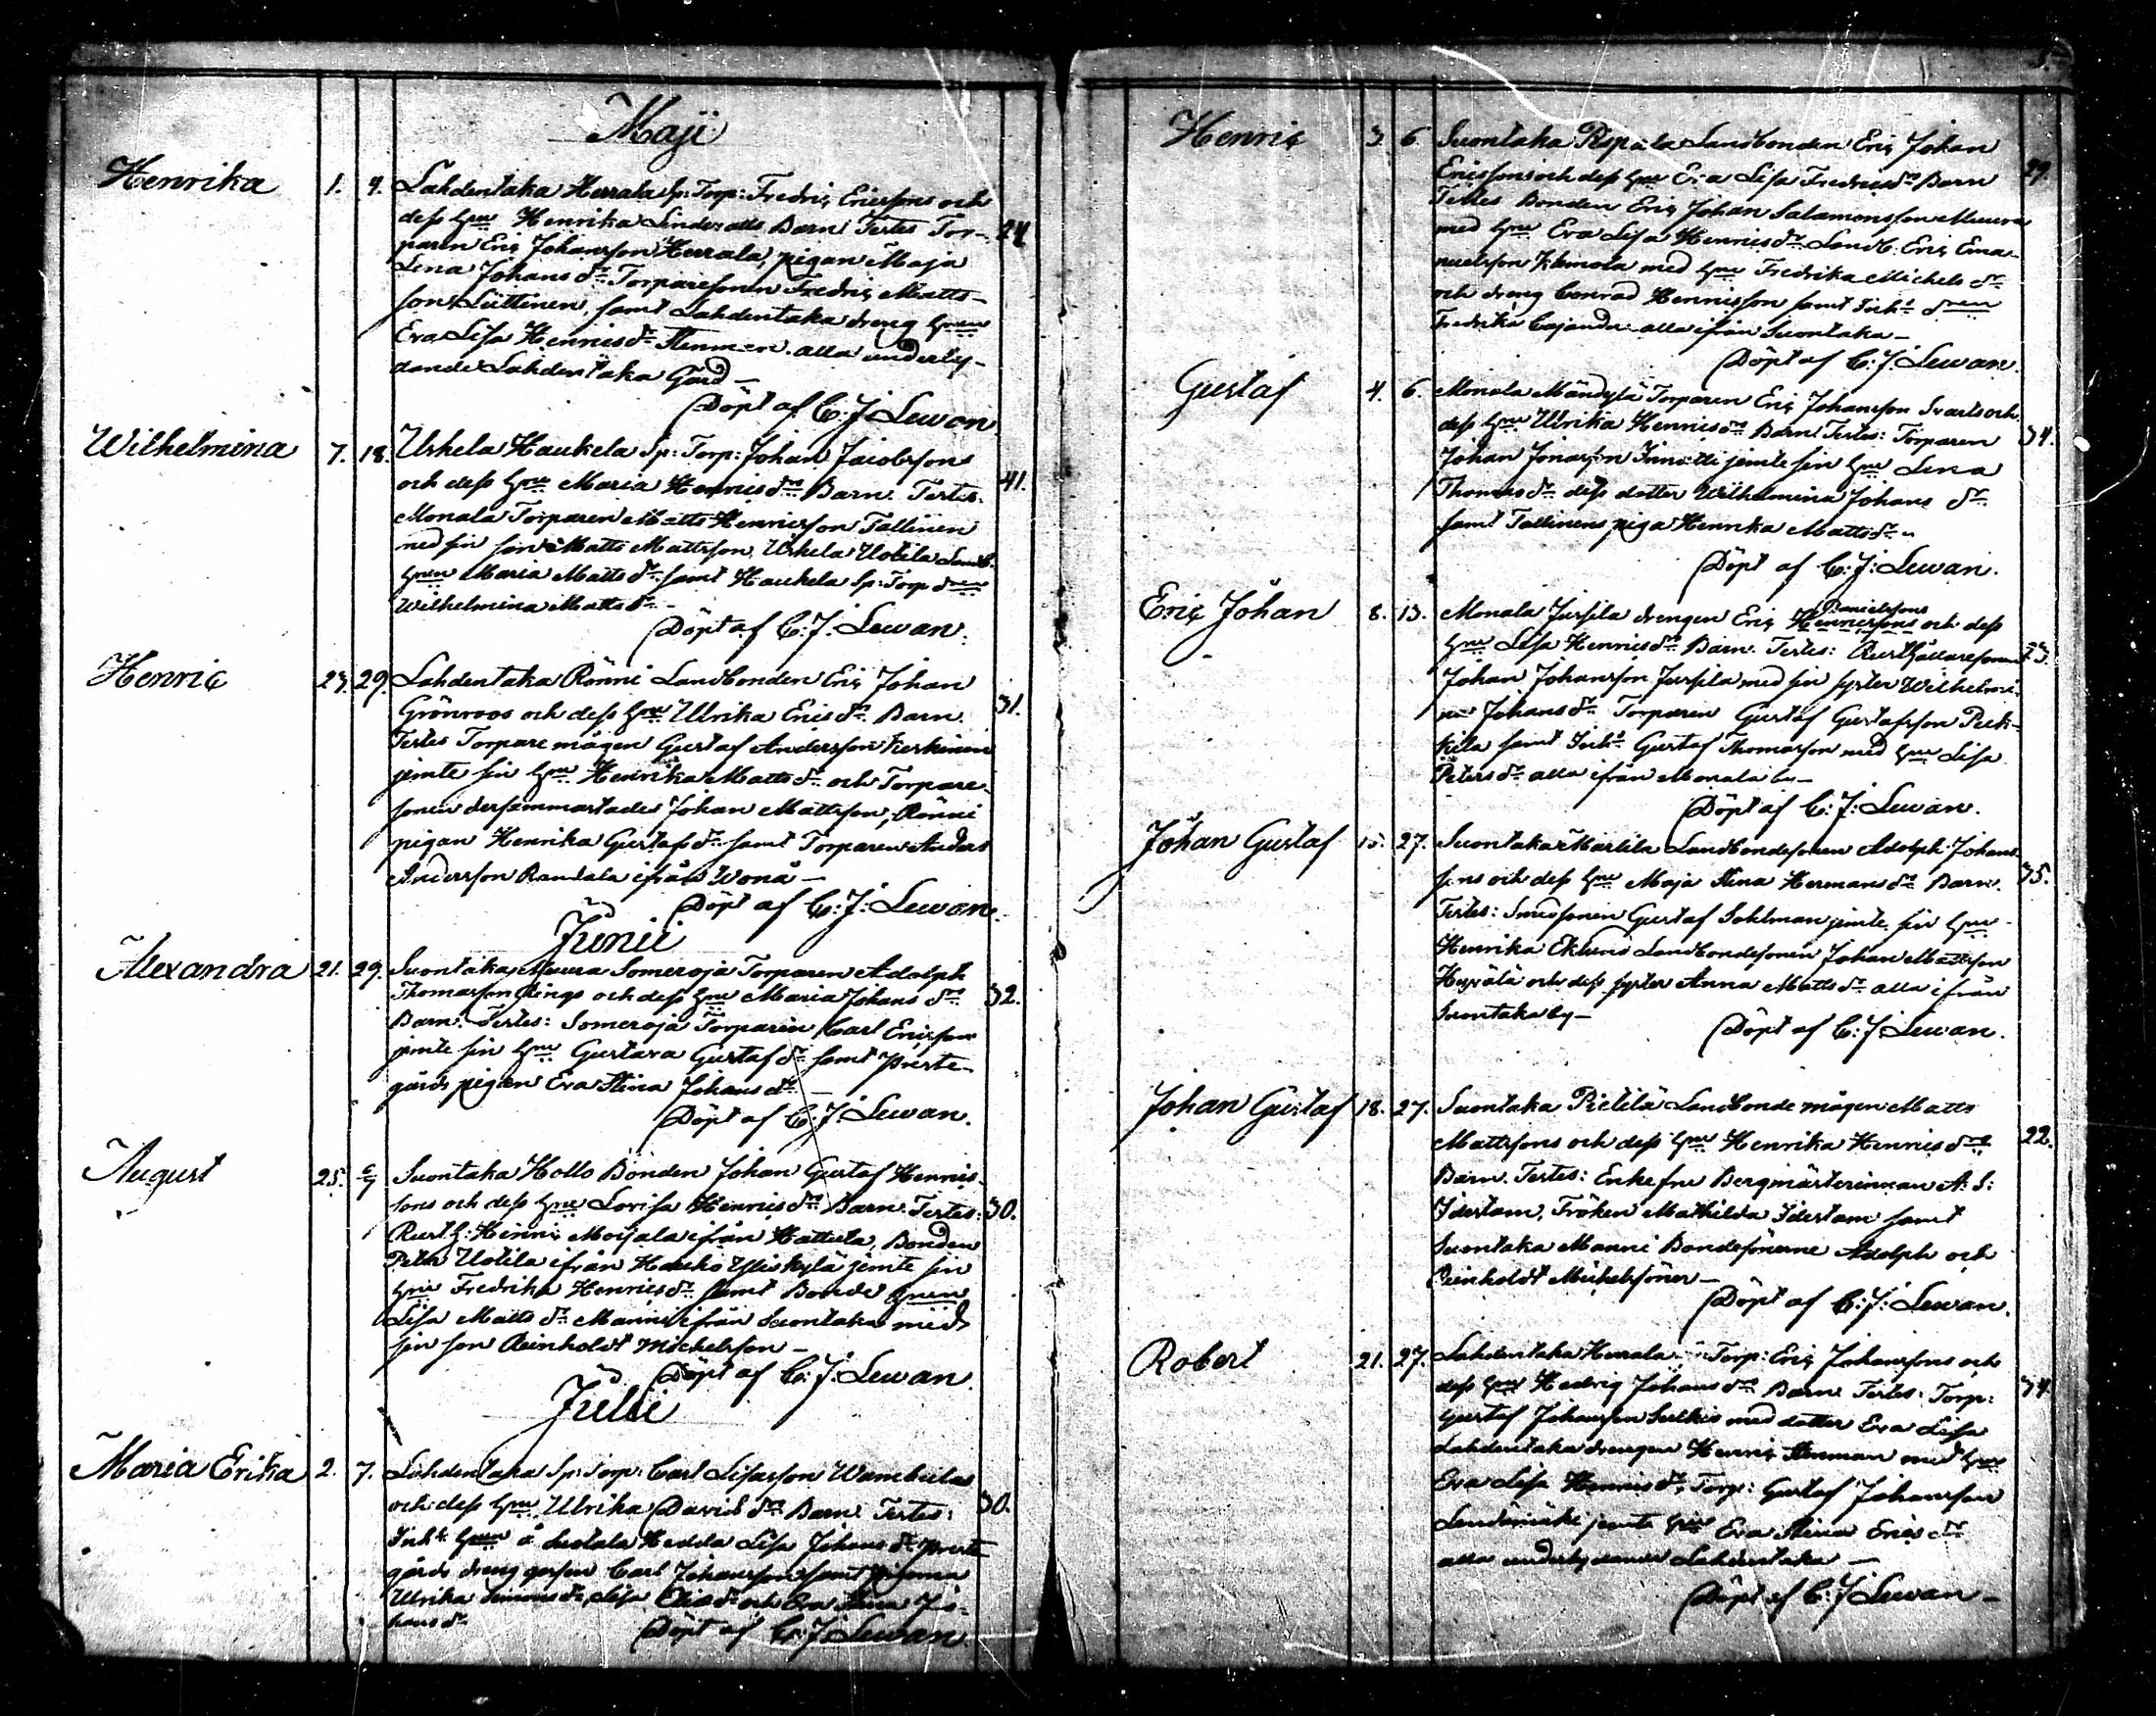 Maji
Henrika 1. 9. Lahdentaka Herrala Sp: Torp: Fredric Ericssons och
dess Hru Henrika Lindsdotts Barn Testes Tor- 24
paren Eric Johansson Herrala, pigan Maja
Lena Johans dr Torparesonen Fredric Matts-
son Lüttinen, samt Lahdentaka dreng Hrun
Eva Lisa Henricsdr Stenman alla underly-
dande Lahdentaka Gård –
Döpt af C: J Lewan
Wilhelmina 7. 18. Urkela Haukela Sp: Torp: Johan Jacobssons
och dess Hru Maria Henricsdrs Barn. Testes: 41.
Monala Torparen Matts Henricsson Tallinen
med sin son Matts Mattsson, Urkela Uotila Landb.
Hrun Maria Mattsdr samt Haukela Sp: Torp dren
Wilhelmina Mattsdr –
Döpt af C: J. Lewan.
Henric 23. 29. Lahdentaka Rönni Landbonden Eric Johan
Grönroos och dess Hru Ulrika Ericsdrs Barn 31.
Testes Torpare mågen Gustaf Andersson Keskinen
jemte sin Hru Henrika Mattsdr och Torpare-
sonen dersammastades Johan Mattsson, Rönni
pigan Henrika Gustafsdr samt Torparen Anders
Andersson Randala ifrån Wonå –
Döpt af C: J: Lewan.
Junii
Alexandra 21. 29. Suontaka, Muura Someroja Torparen Adolph
Thomasson Rings och dess Hru Maria Johans drs 32.
Barn: Testes: Someroja Torparen Carl Ericsson
jemte sin Hru Gustava Gustafdr samt Preste-
gårds pigan Eva Stina Johansdr –
Döpt af C: J. Lewan.
August 25. 6/7 Suontaka Hollo Bonden Johan Gustaf Henrics-
sons och dess Hru Lovisa Henricsdrs Barn. Testes: 30.
Rusth: Henric Moijala ifrån Hattula, Bonden
Petter Uotila ifrån Hauho Yliskylä jemte sin
Hru Fredrika Henricsdr samt Bonde Hrun
Lisa Matts dr Manni ifrån Suontaka med
sin son Reinholdt Michelsson –
Döpt af C: J: Lewan
Julii
Maria Erika 2. 7. Lahdentaka Sp: Torp: Carl Lisasson Wambulas
och dess Hru Ulrika Davids drs Barn. Testes: 30.
Inhs Hrun å Lustala Hedda Lisa Johans dr Preste
gårds dreng gossen Carl Johansson samt pigorna
Ulrika Simonsdr, Lisa Eliaedr och Eva Stina Jo-
hans dr
Döpt af C: J: Lewan
5.
Henric 3. 6. Suontaka Pispala Landbonden Eric Johan
Ericssons och dess Hru Eva Lisa Fredricsdrs Barn 29.
Testes Bonden Eric Johan Salamonsson Muura
med Hru Eva Lisa Henricsdr Landb. Eric Ema-
nuelsson Klemola med Hru Fredrika Michels dr
och dreng Conrad Henricsson samt Inhs dren
Fredrika Cajander alla ifrån Suontaka –
Döpt af C: J. Lewan.
Gustaf 4. 6. Monala Mändylä Torparen Eric Johansson Svarts och
dess Hru Ulrika Henricsdrs Barn Testes: Torparen 34.
Johan Jonasson Innatti jemte sin Hru Lena
Thomasdr dess dotter Wilhelmina Johans dr
samt Tallinens piga Henrika Mattsdr –
Döpt af C: J: Lewan.
Eric Johan 8. 13. Monala Jussila drengen Eric Henricssons och dess
Danielssons
Hru Lisa Henricsdrs Barn. Testes: Rusthållaresonen 23.
Johan Johansson Jussila med sin syster Wilhelmi-
na Johansdr Torparen Gustaf Gustafsson Peck-
kila samt Inhs Gustaf Thomasson med Hru Lisa
Petersdr alla ifrån Monala by –
Döpt af C: J: Lewan.
Johan Gustaf 15. 27. Suontaka Marttila Landbondesonen Adolph Johans-
sons och dess Hru Maja Stina Hermans drs Barn. 35.
Testes: Smedsonen Gustaf Sohlman jemte sin Hru
Henrika Eklund Landbondesonen Johan Mattsson
Heprälä och dess syster Anna Mattsdr alla ifrån
Suontaka by –
Döpt af C: J. Lewan.
Johan Gustaf 18. 27. Suontaka Pietilä Landbonde mågen Matts
Mattssons och dess Hru Henrika Henricsdrs 22.
Barn. Testes: Enkefru Bergmästerinnan A: S:
Idestam, Fröken Mathilda Idestam samt
Suontaka Manni Bondesönerne Adolph och
Reinholdt Michelssöner –
Döpt af C: J: Lewan.
Robert 21. 27. Lahdentaka Herrala Torp: Eric Johanssons och
dess Hru Hedvig Johansdrs Barn Testes: Torp: 34.
Gustaf Johansson Sulkis med dotter Eva Lisa
Lahdentaka drengen Henric Stenman med Hru
Eva Lisa Henricsdr, Torp: Gustaf Johansson
jemte Hru Eva Stina Erics dr
alla underlydande Lahdentaka –
Döpt af C: J Lewan –